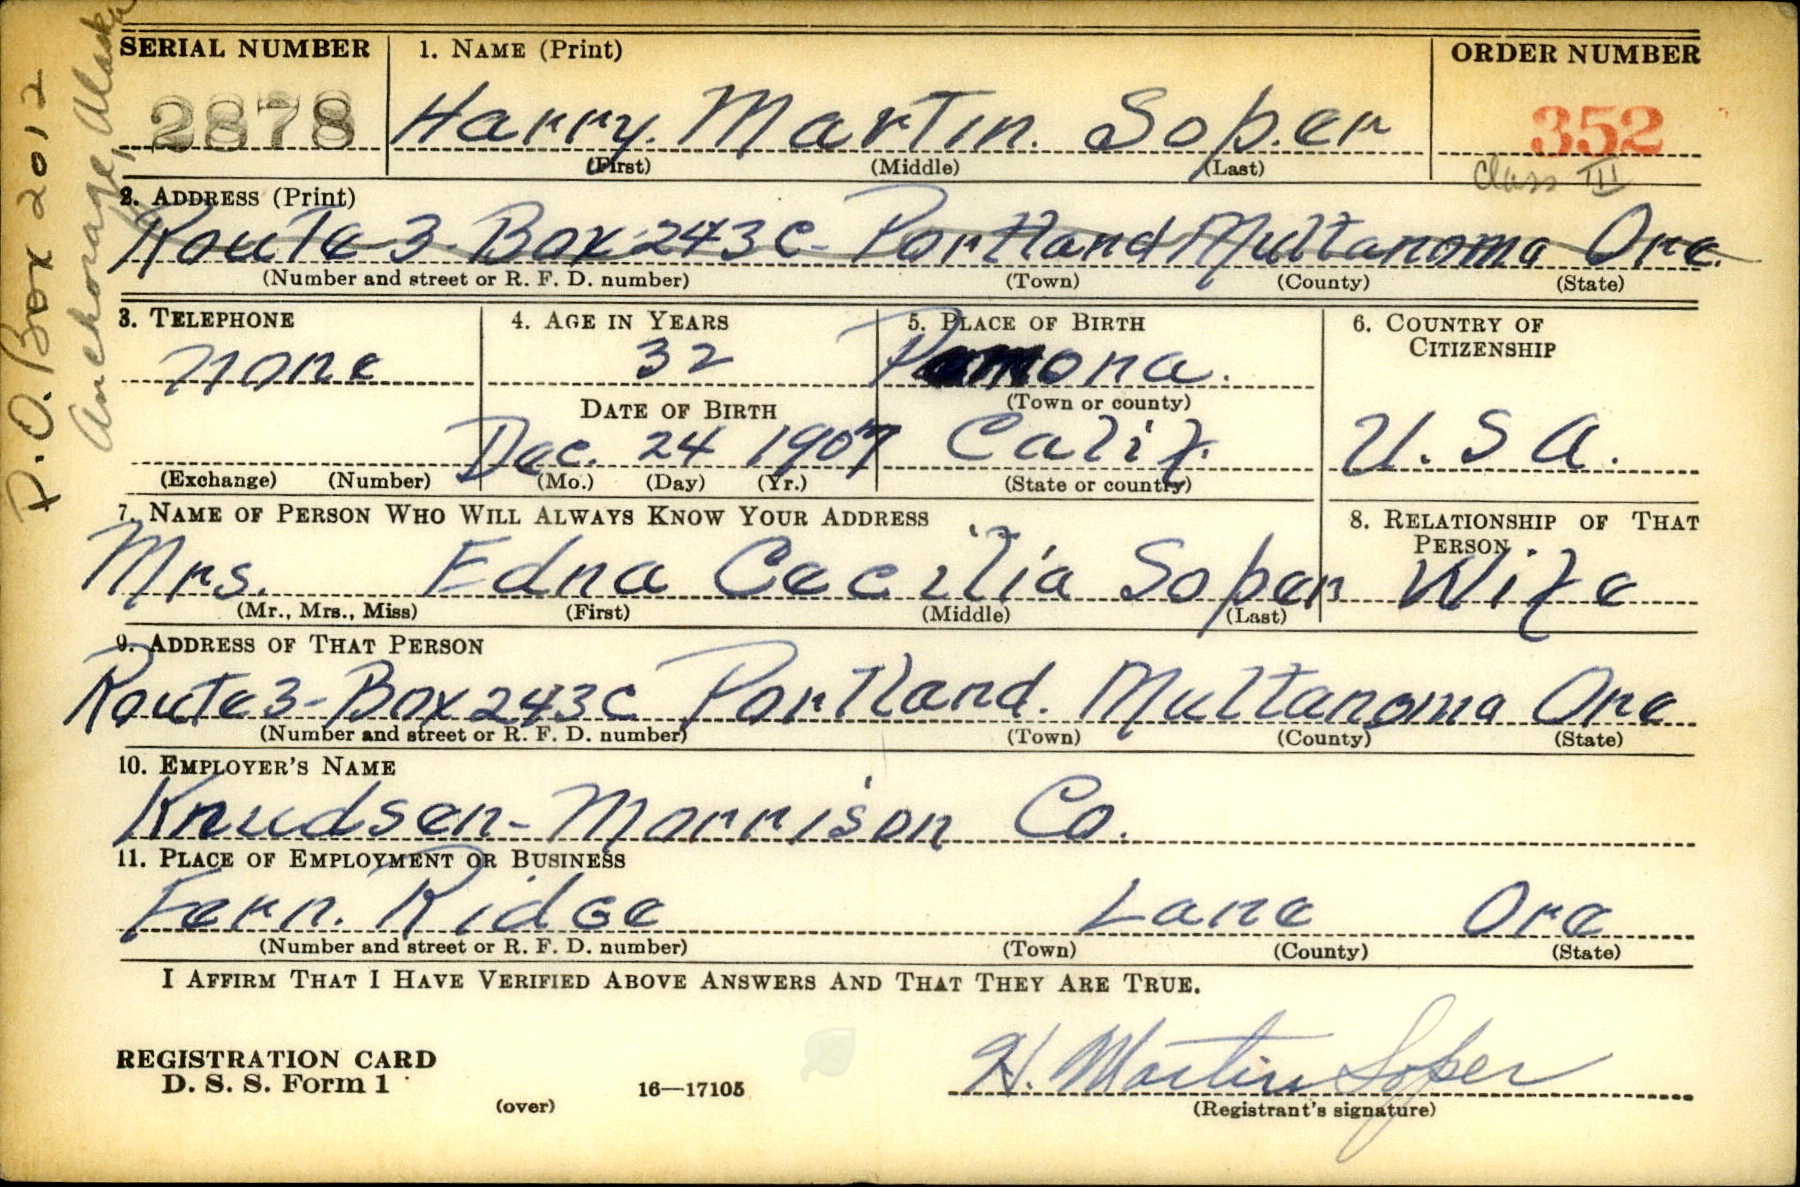 P.O. Box 2012
Anchorage, Alaska
SERIAL NUMBER 1. NAME (Print) ORDER NUMBER
2878 Harry. Martin. Soper 352
(First) (Middle) (Last)
Class III
2. ADDRESS (Print)
Route 3- Box-243C- Portland Multanoma Ore.
(Number and street or R. F. D. number) (Town) (County) (State)
3. TELEPHONE 4. AGE IN YEARS 5. PLACE OF BIRTH 6. COUNTRY OF CITIZENSHIP
none 32 Pomona.
DATE OF BIRTH (Town or county)
Dec. 24 1907 Calif. U. S A.
(Exchange) (Number) (Mo.) (Day) (Yr.) (State or country)
7. NAME OF PERSON WHO WILL ALWAYS KNOW YOUR ADDRESS 8. RELATIONSHIP OF THAT PERSON
Mrs. Edna Cecilia Soper Wife
(Mr., Mrs., Miss) (First) (Middle) (Last)
9. ADDRESS OF THAT PERSON
Route 3- Box 243C Portland. Multanoma Ore
(Number and street or R. F. D. number) (Town) (County) (State)
10. EMPLOYER'S NAME
Knudsen-Morrison Co.
11. PLACE OF EMPLOYMENT OR BUSINESS
Fern. Ridge Lane Ore
(Number and street or R. F. D. number) (Town) (County) (State)
I AFFIRM THAT I HAVE VERIFIED ABOVE ANSWERS AND THAT THEY ARE TRUE.
REGISTRATION CARD
D. S. S. Form 1 16—17105 H. Martin Soper
(over) (Registrant's signature)